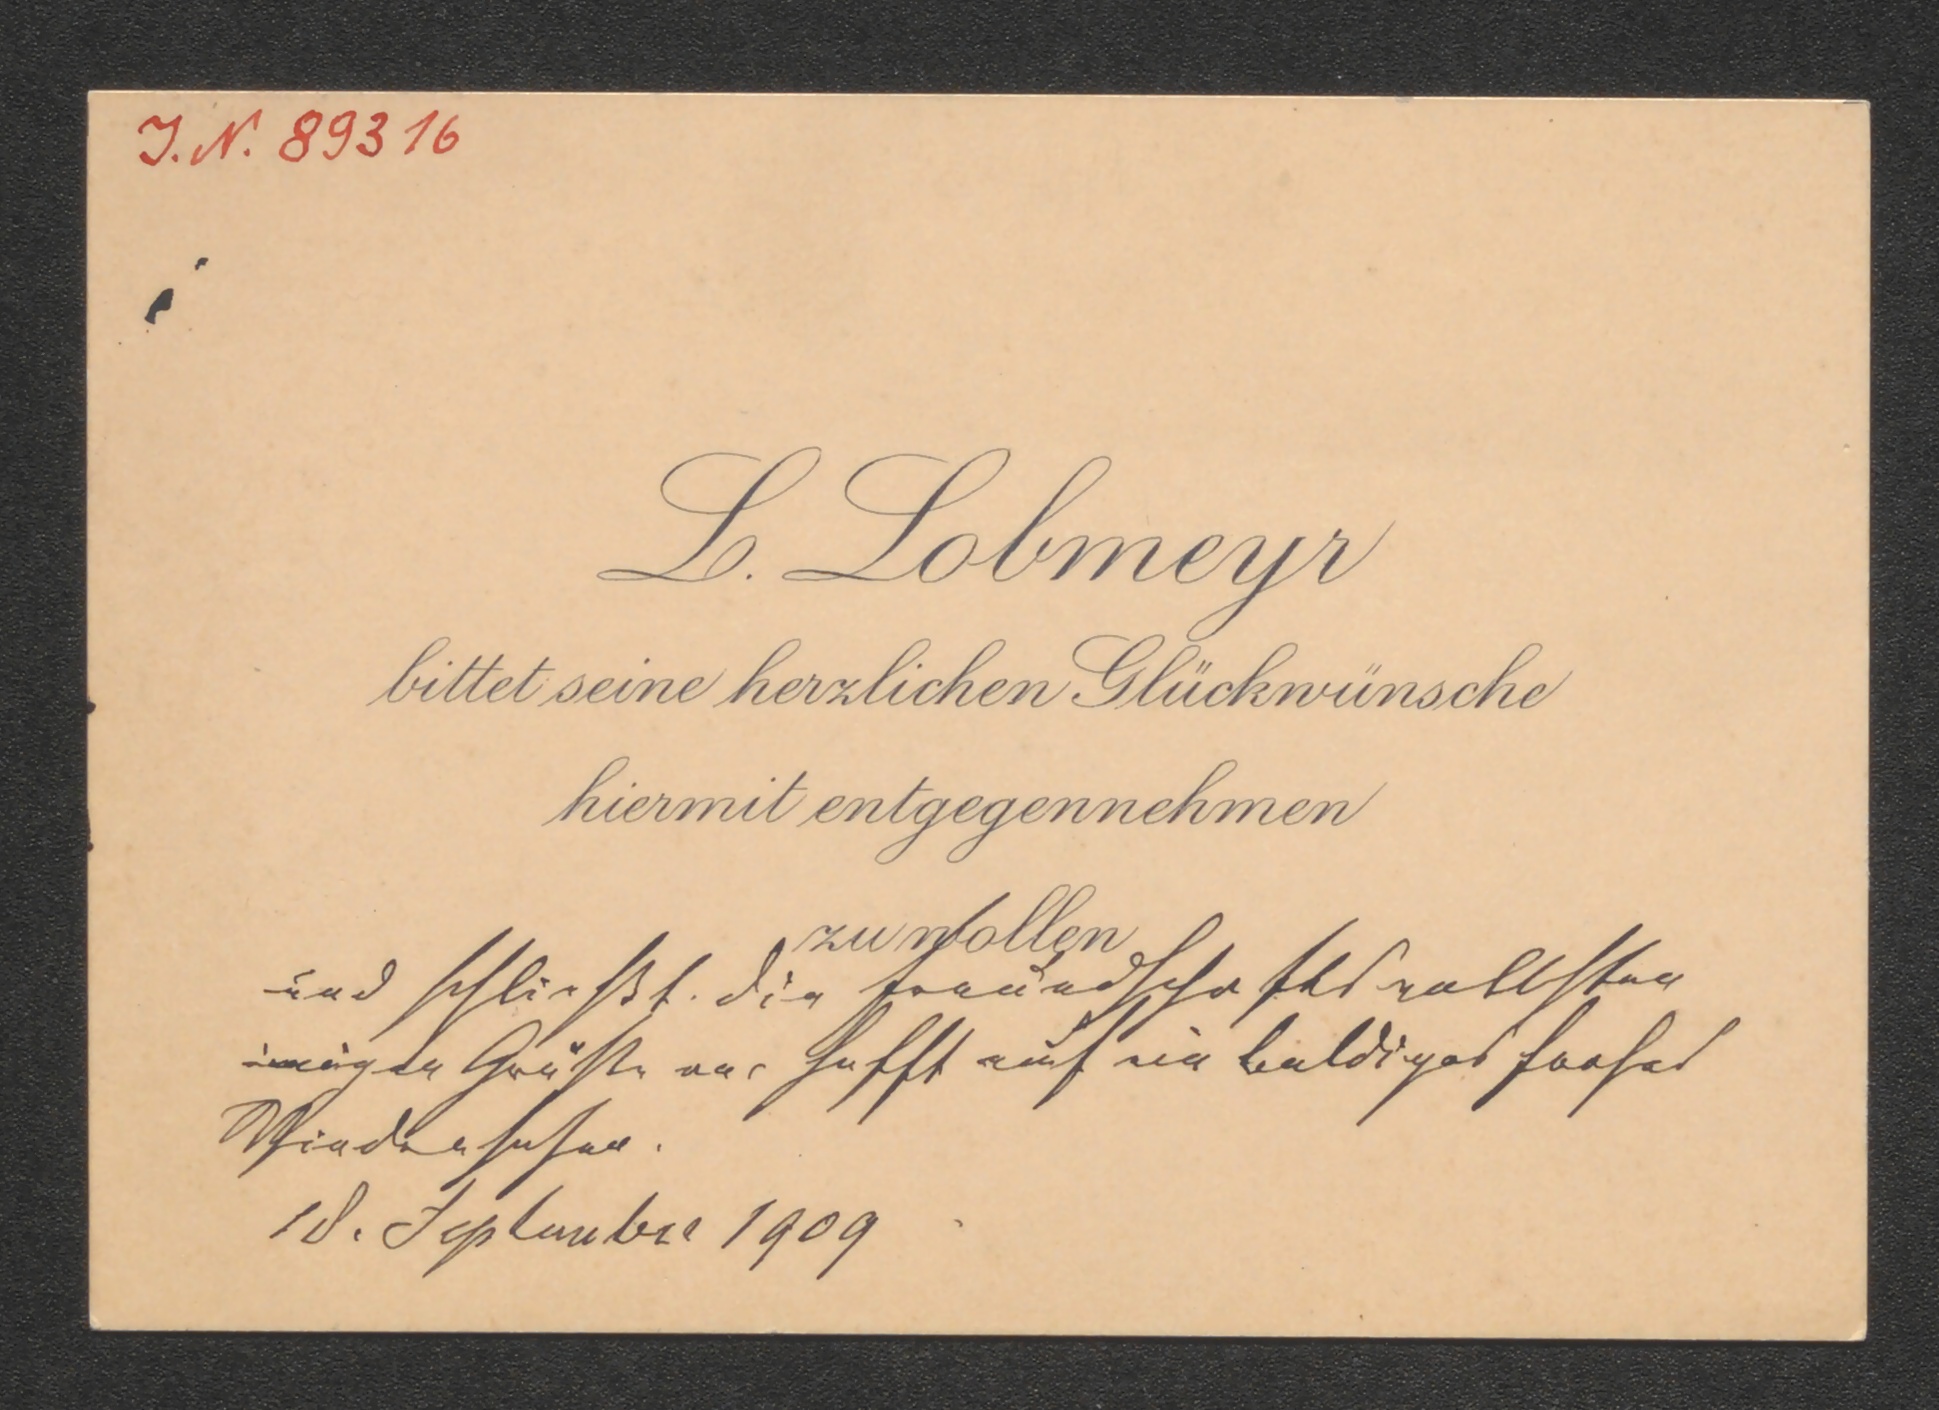 J. N. 89316
L. Lobmeyr
bittet seine herzlichen Glückwünsche
hiermit entgegennehmen
zu wollen
und schließt die freundschaftsvollsten
Grüße an, hofft auf ein baldiges frohes
Wiedersehen.
18. September 1909